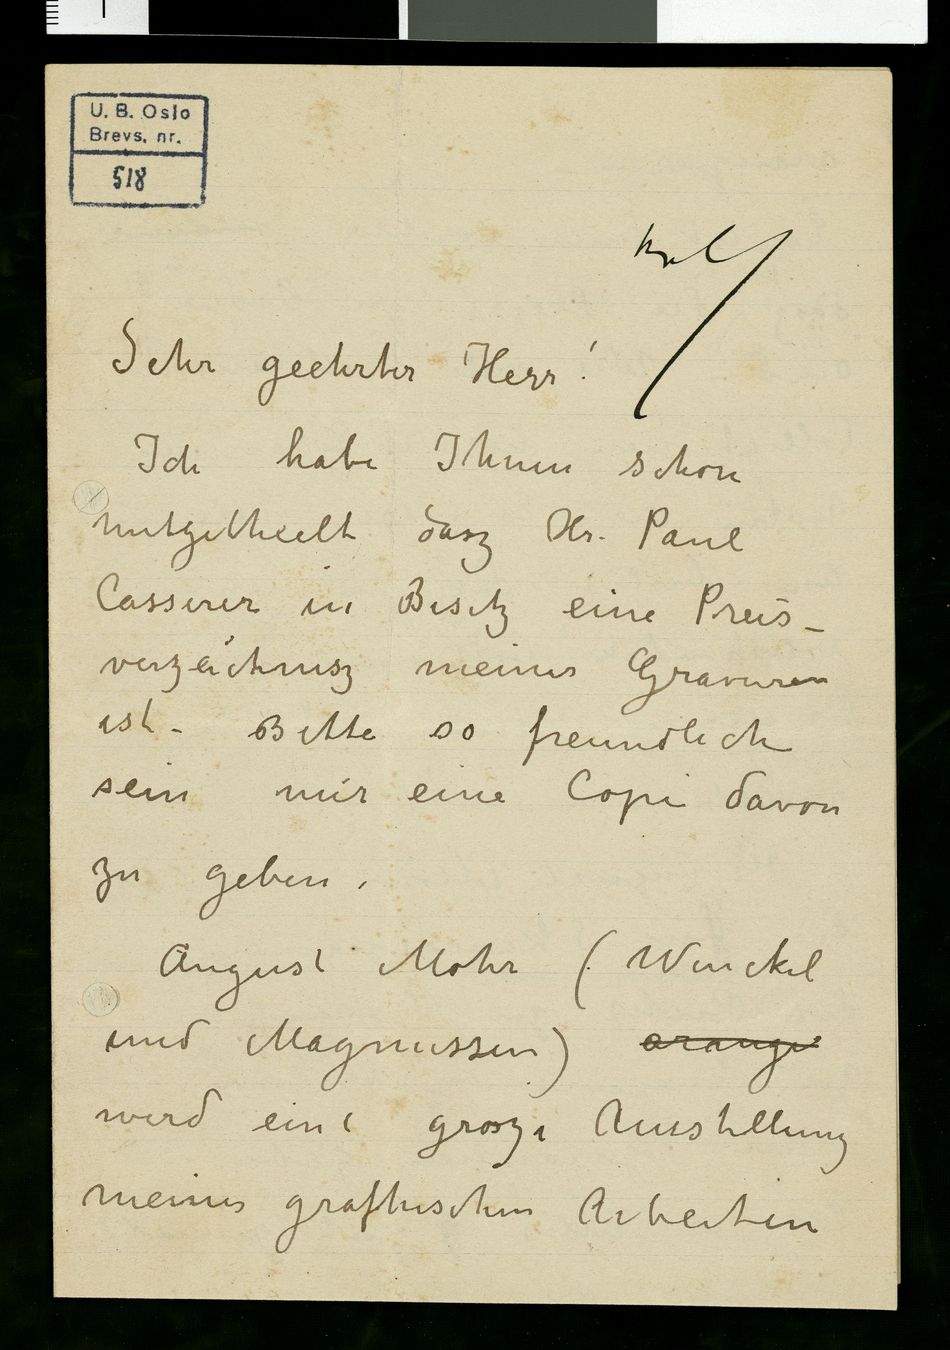 U. B. Oslo
Brevs. nr.
518
Sehr geehrter Herr!
Ich habe Ihnen schon
mitgetheelt dasz Hr. Paul
Casserer in Besitz eine Preis-
verzeichnisz meiner Gravuren
ist. Bitte so freundlich
sein mir eine Copi davon
zu geben.
August Mohr (Winckel
und Magnussen) arange
werd eine grosze Ausstellung
meiner grafhischen Arbeiten